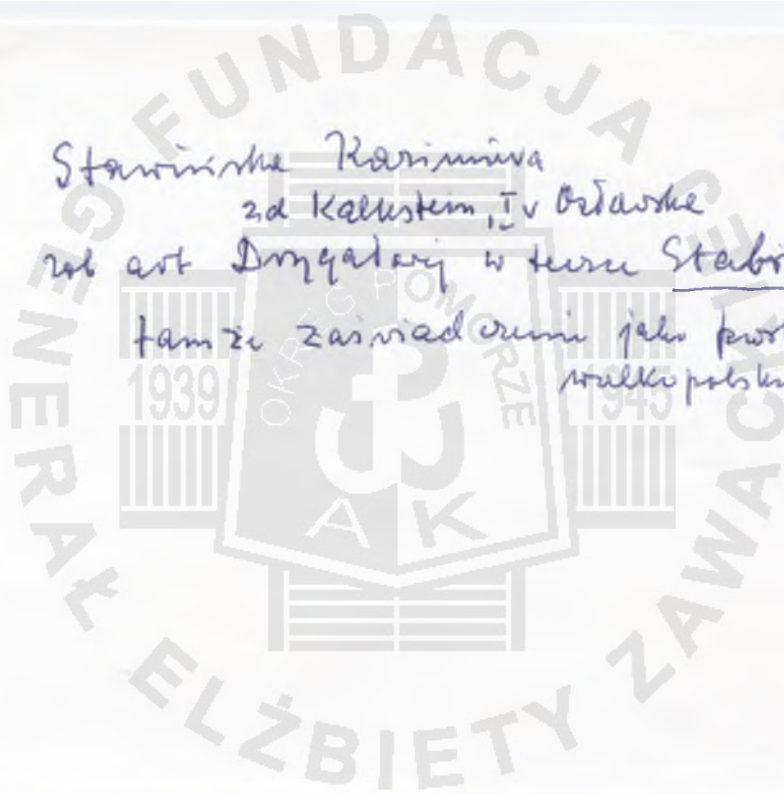 Stawińska Kazimiera
zd Kalkstein, I v
zob art Drygałowej w teczce Stabr
tamże zaświadczenie jako
wielkopolsk
FUNDACJA GENERAŁ ELŻBIETY ZAWACKIEJ
OKRĘG POMORZE
1939 1945
AK